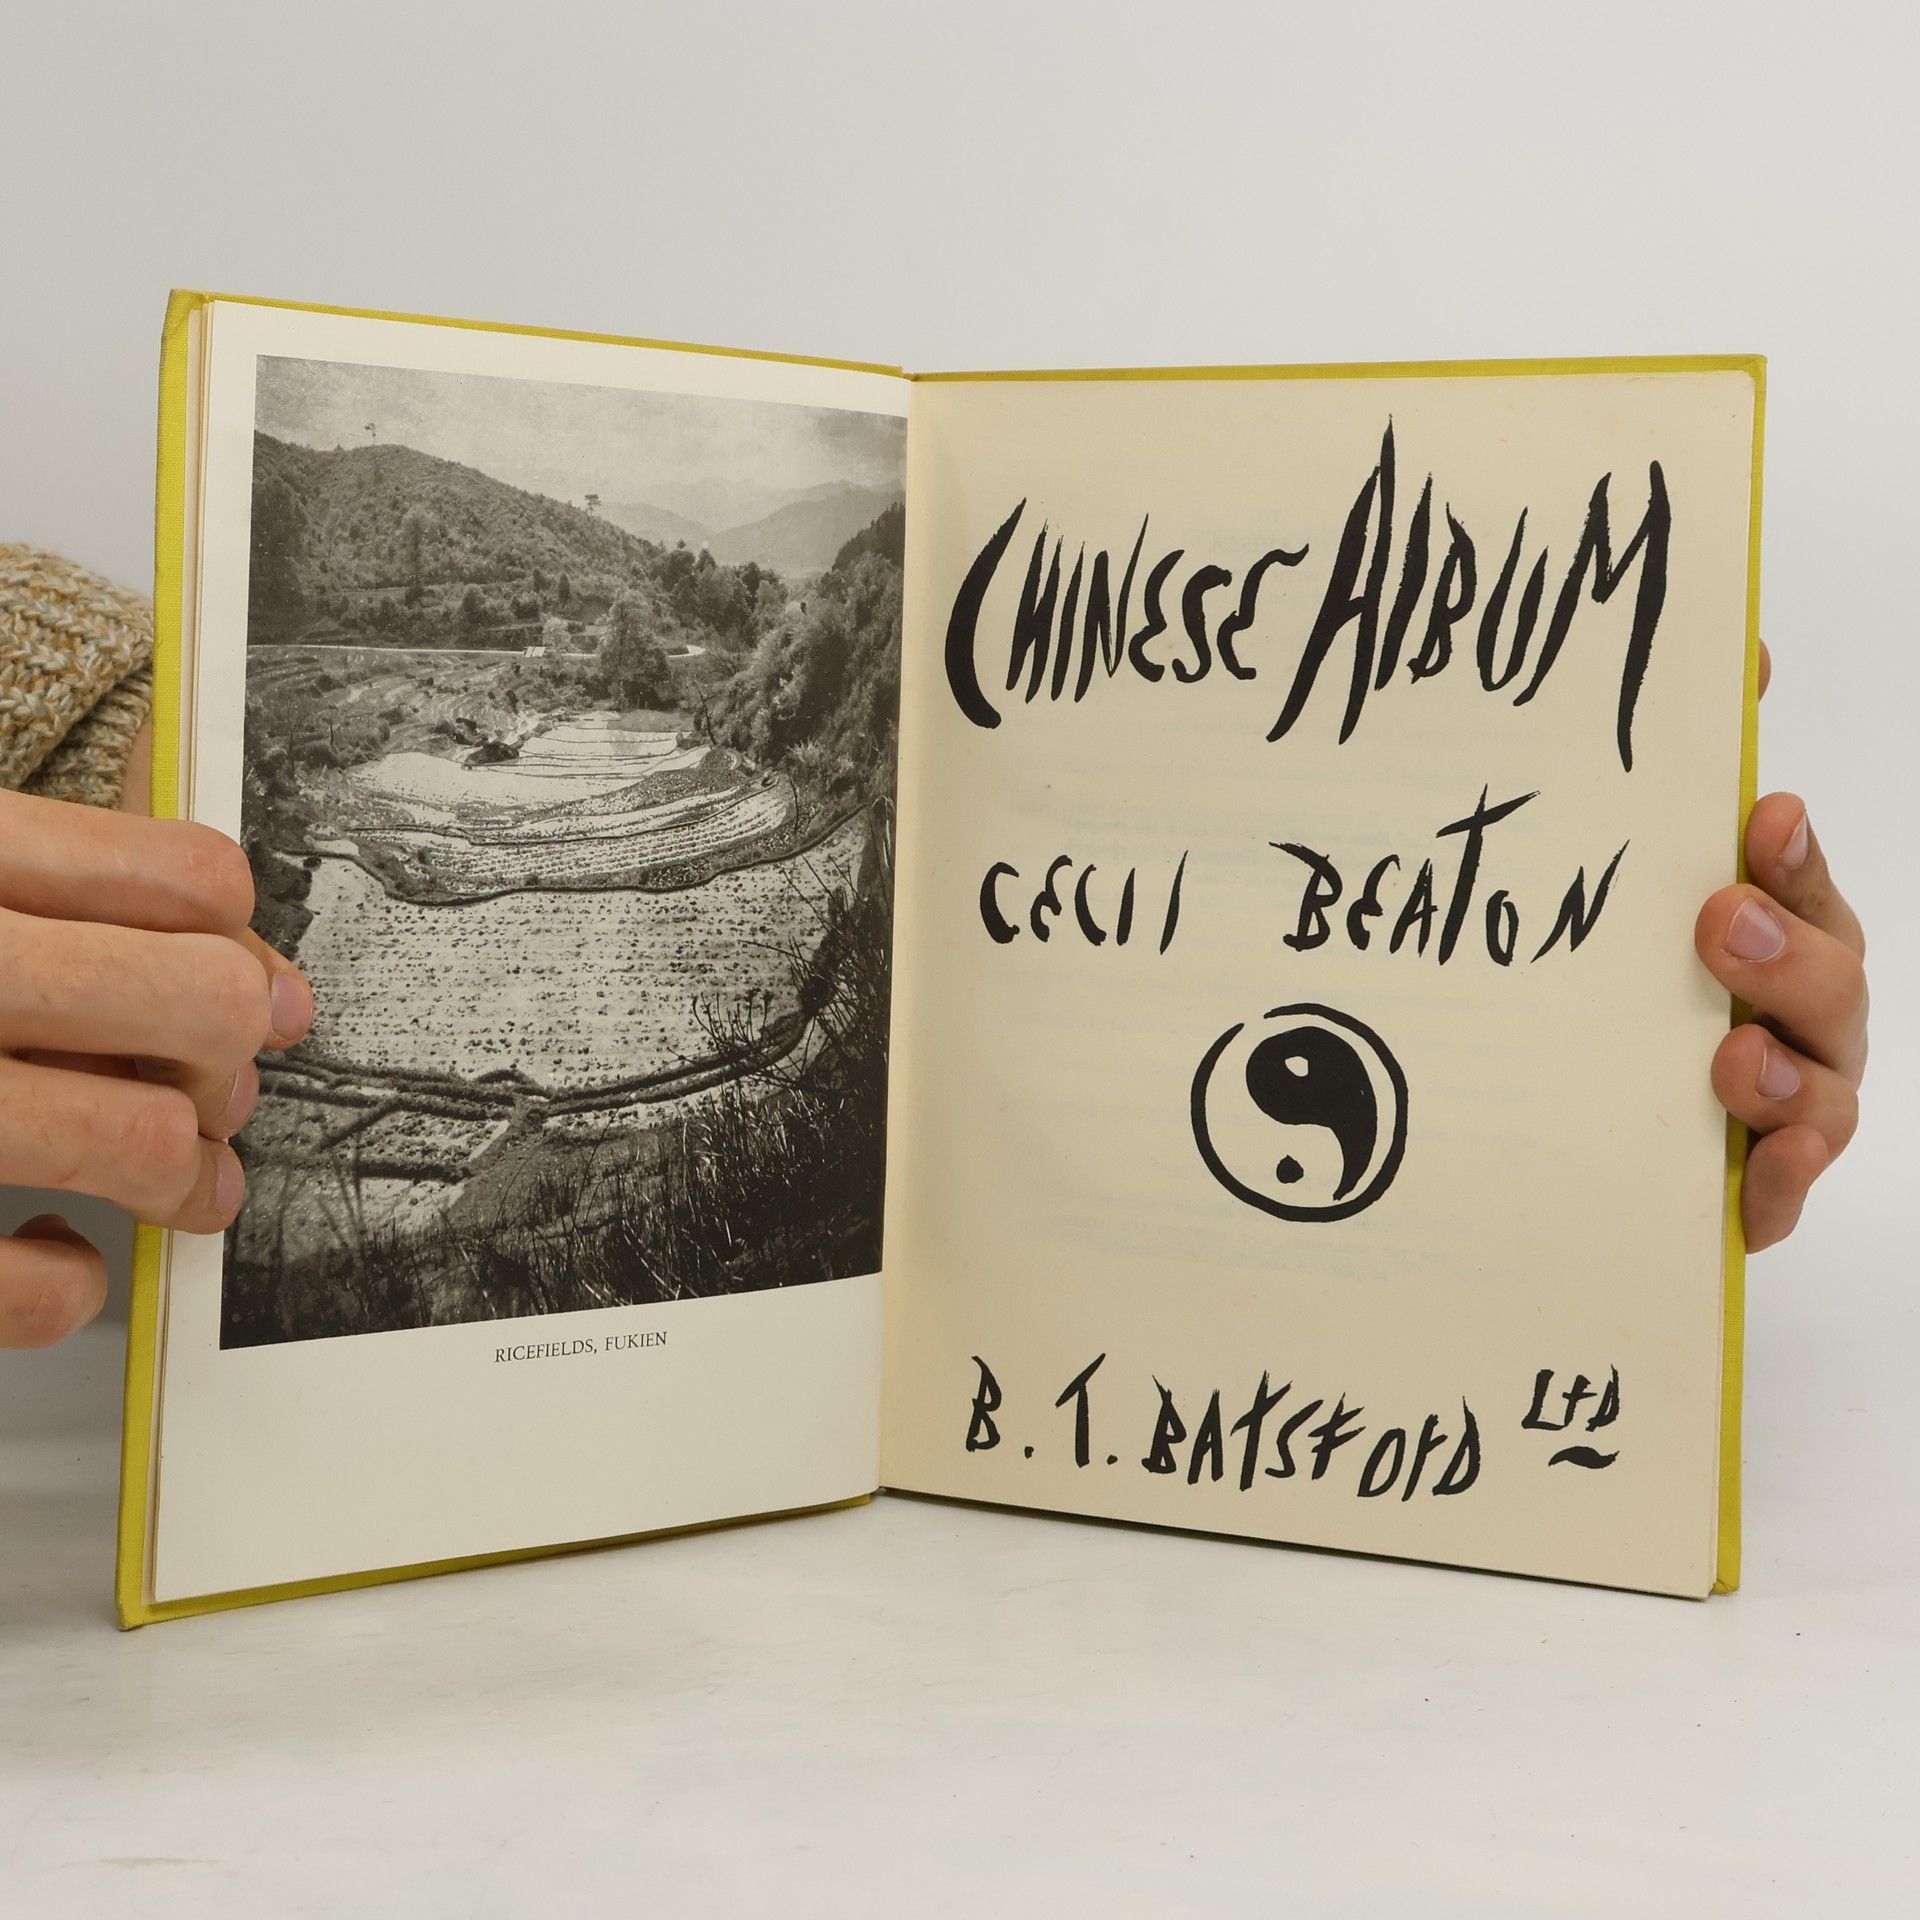 RICEFIELDS, FUKIEN
CHINESE ALBUM
CECIL BEATON
B. T. BATSFORD LTD